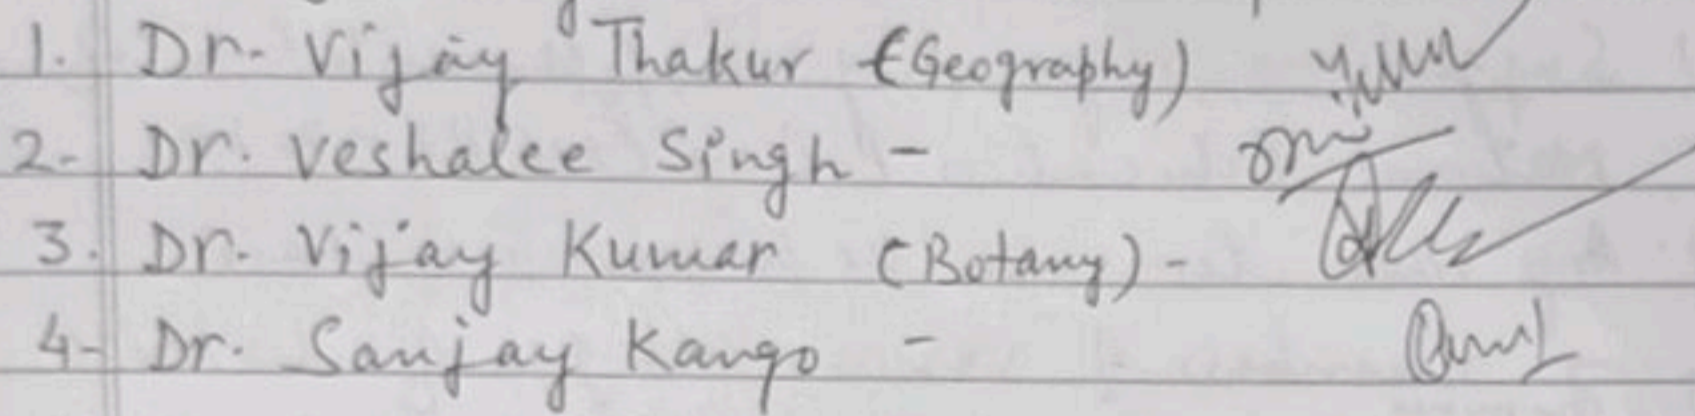 1. Dr. Vijay Thakur (Geography)
2- Dr. Veshalee Singh -
3. Dr. Vijay Kumar (Botany) -
4- Dr. Sanjay Kango -